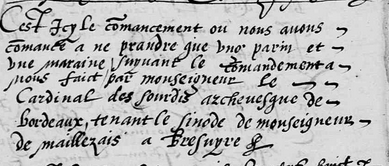 Cest Icy le comancement ou nous avons
comancé a ne prandre que vng parin et
vne maraine suyuant le comandement a
nous faict par monseigneur le
Cardinal des sourdis archeuesque de
bordeaux, tenant le sinode de monseigneur
de maillezais a Bresuyre